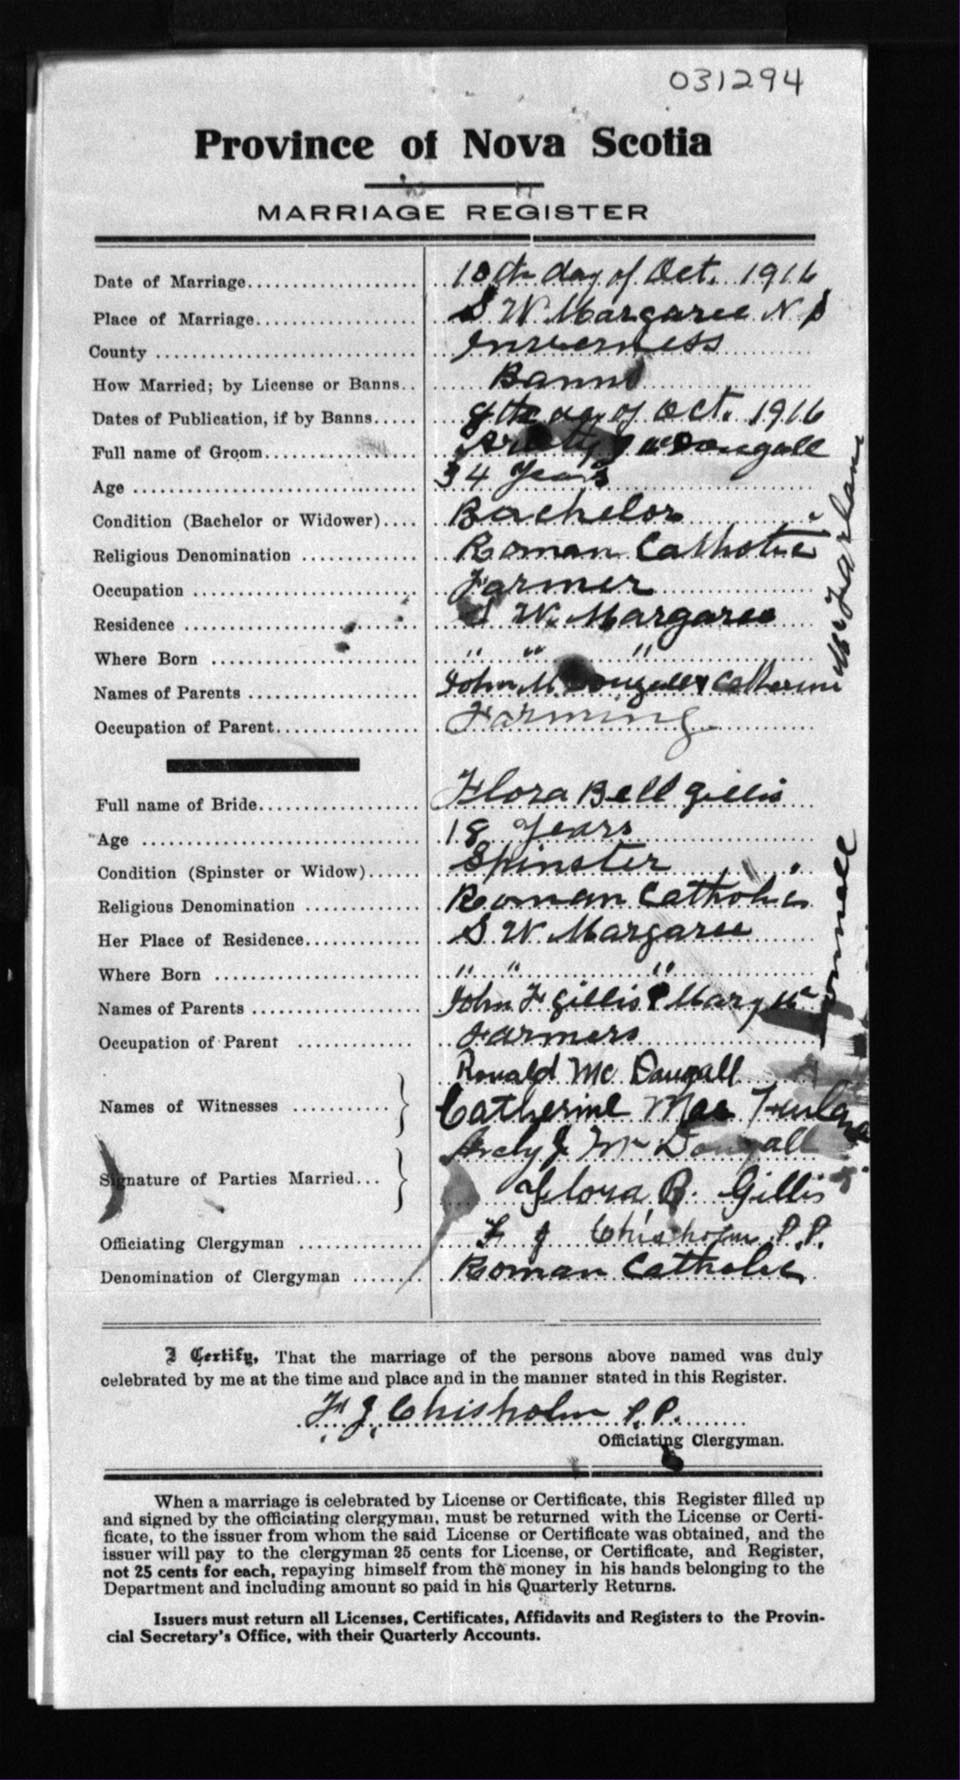 031294
Province of Nova Scotia
MARRIAGE REGISTER
Date of Marriage 10th day of Oct. 1916
Place of Marriage S W Margaree N S
County Inverness
How Married; by License or Banns Banns
Dates of Publication, if by Banns 8th day of Oct. 1916
Full name of Groom J McDougall
Age 34 Years
Condition (Bachelor or Widower) Bachelor
Religious Denomination Roman Catholic
Occupation Farmer
Residence S W. Margaree
Where Born " " "
Names of Parents John McDougall & Catherine McFarlane
Occupation of Parent Farming
Full name of Bride Flora Bell Gillis
Age 18 Years
Condition (Spinster or Widow) Spinster
Religious Denomination Roman Catholic
Her Place of Residence S W Margaree
Where Born " " "
Names of Parents John F Gillis & Mary Mc
Occupation of Parent Farmers
Names of Witnesses Ronald Mc Dougall
Catherine Mac
Signature of Parties Married Archy J Mc Dougall
Flora B. Gillis
Officiating Clergyman F J Chisholm P.P.
Denomination of Clergyman Roman Catholic
I Certify, That the marriage of the persons above named was duly
celebrated by me at the time and place and in the manner stated in this Register.
F J Chisholm P.P.
Officiating Clergyman.
When a marriage is celebrated by License or Certificate, this Register filled up
and signed by the officiating clergyman, must be returned with the License or Certi-
ficate, to the issuer from whom the said License or Certificate was obtained, and the
issuer will pay to the clergyman 25 cents for License, or Certificate, and Register,
not 25 cents for each, repaying himself from the money in his hands belonging to the
Department and including amount so paid in his Quarterly Returns.
Issuers must return all Licenses, Certificates, Affidavits and Registers to the Provin-
cial Secretary's Office, with their Quarterly Accounts.